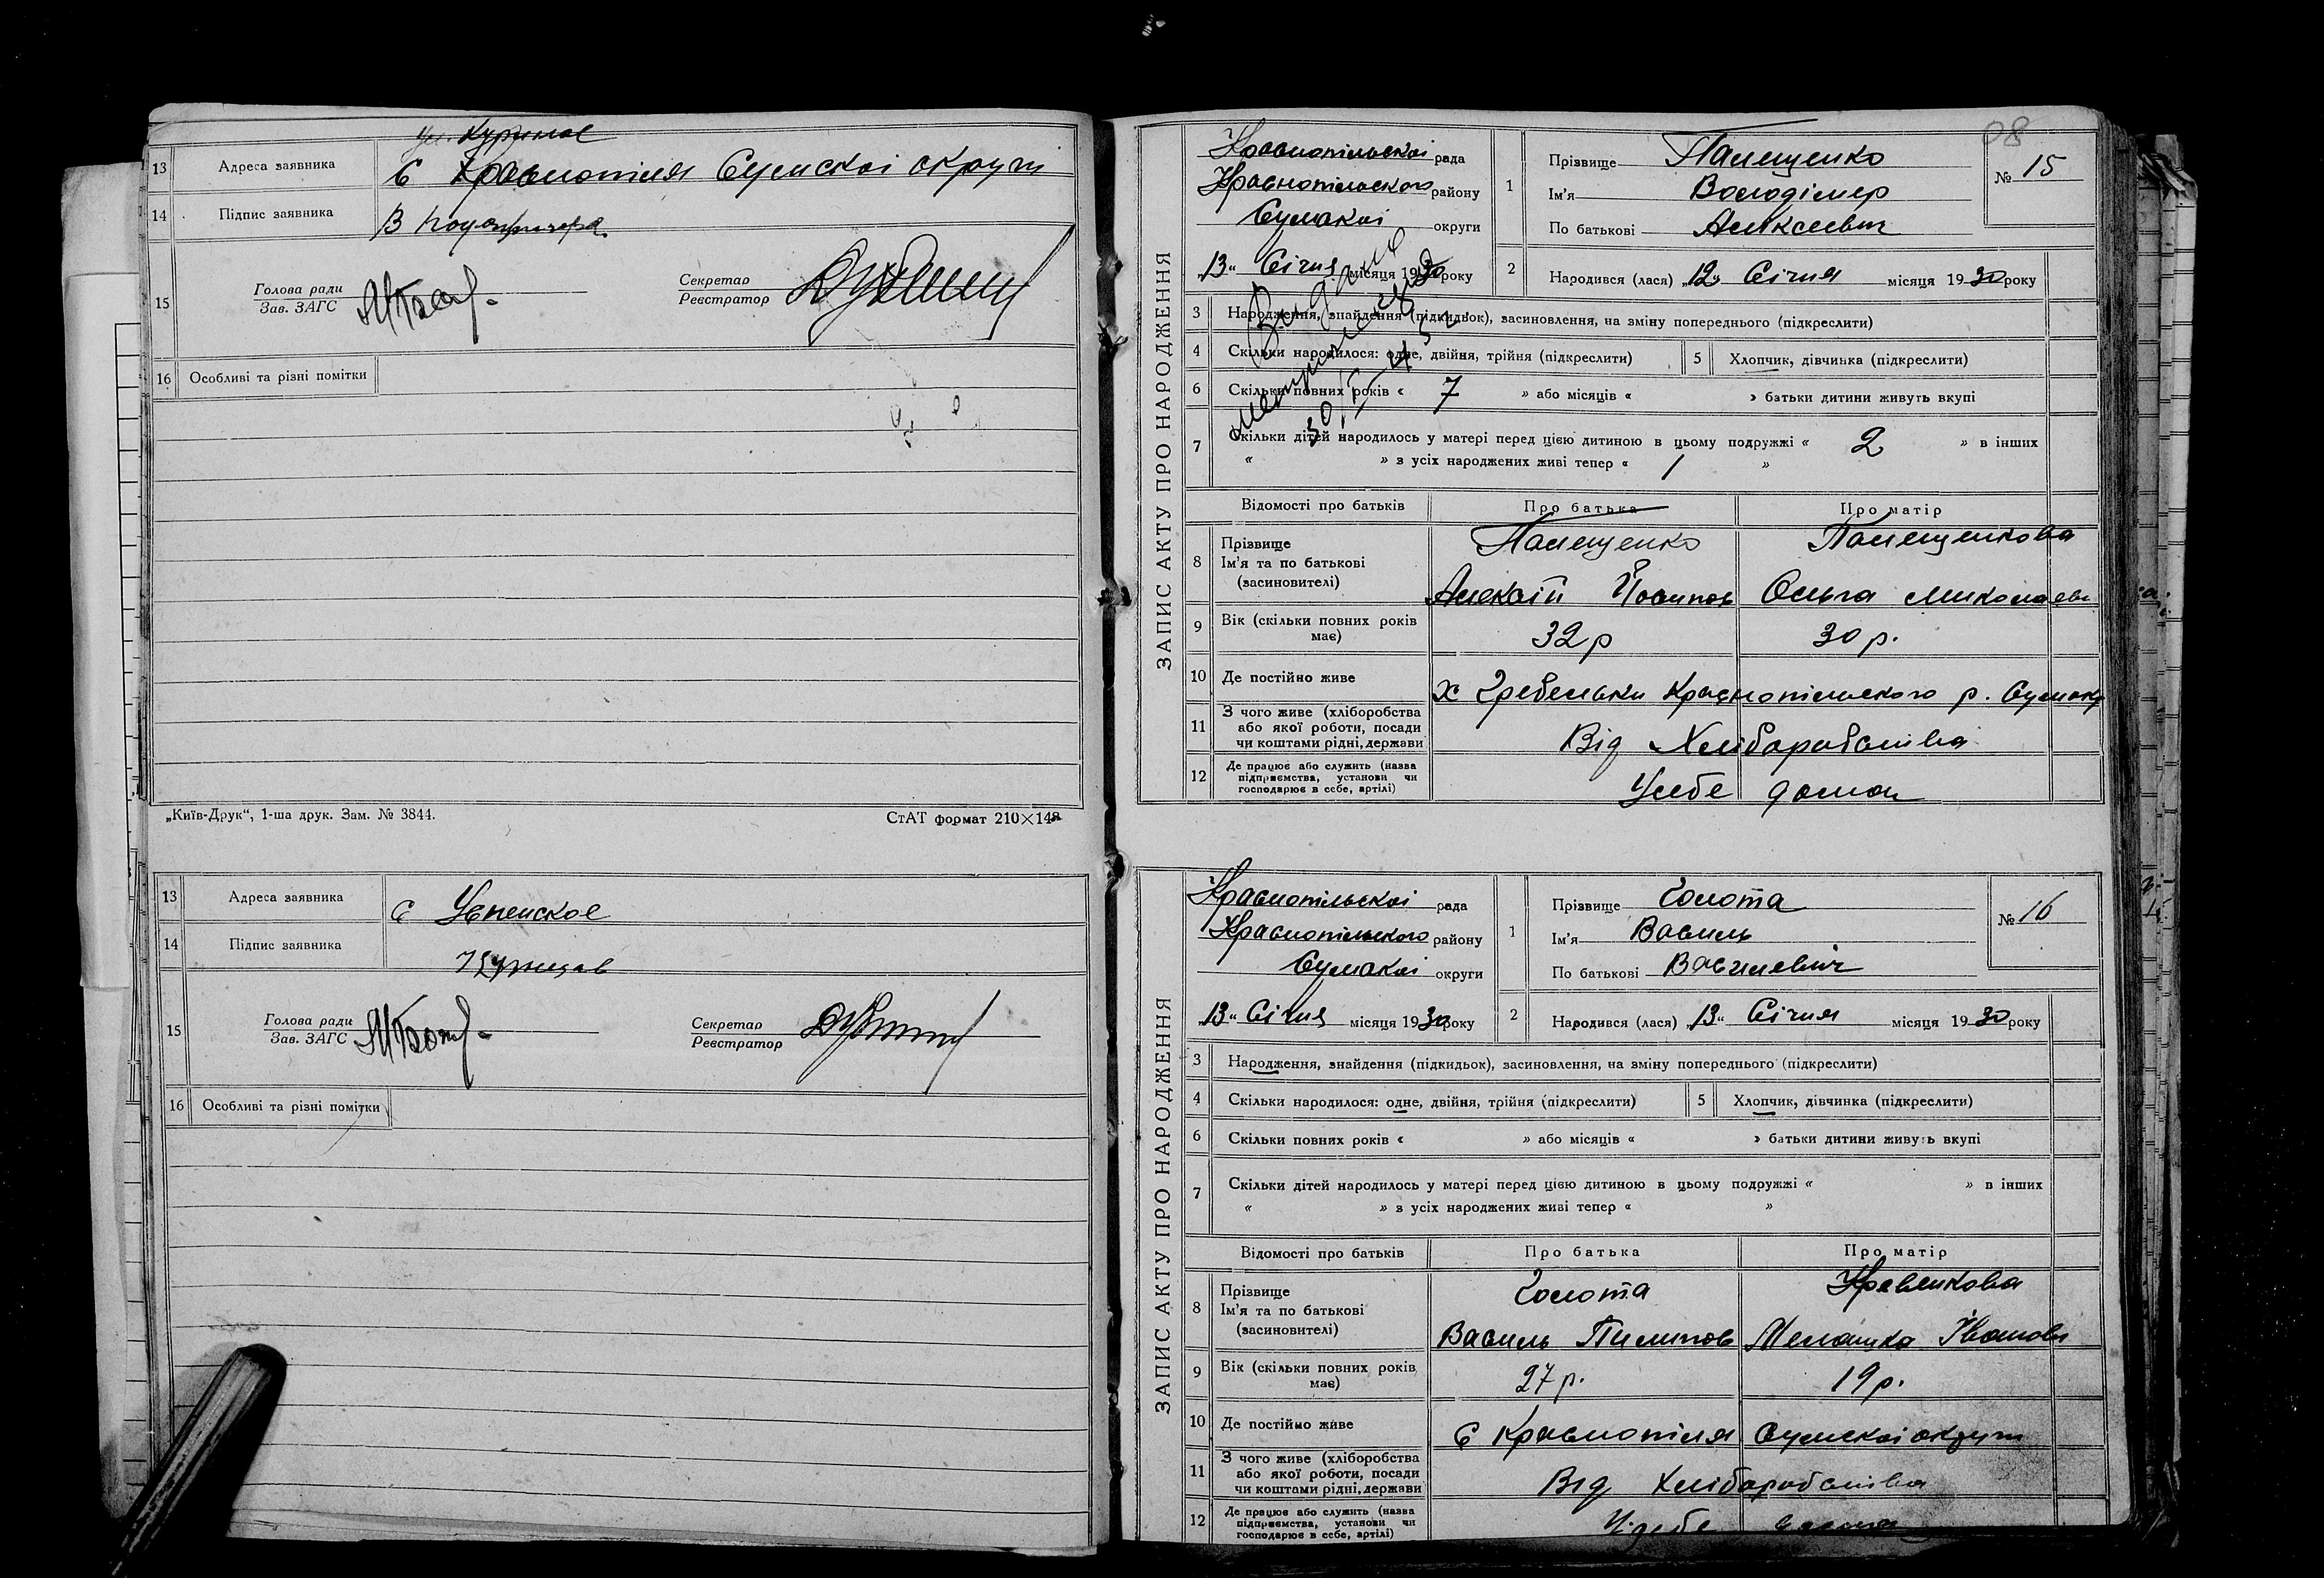 13 Адреса заявника с Краснопілля Сумскоі округи
14 Підпис заявника В
15 Голова ради Зав. ЗАГС Секретар Реєстратор
16 Особливі та різні помітки
„Київ-Друк“, 1-ша друк. Зам. № 3844. СтАТ формат 210×148
13 Адреса заявника с Успенское
14 Підпис заявника
15 Голова ради Зав. ЗАГС Секретар Реєстратор
16 Особливі та різні помітки
08
ЗАПИС АКТУ ПРО НАРОДЖЕННЯ
Краснопільскоі рада
Краснопільского району
Сумскоі округи
„13“ Січня місяця 1930 року
1 Прізвище Палещенко
Ім'я Володімер
По батькові Алексеевич
№ 15
2 Народився (лася) „12“ Січня місяця 1930 року
Видано
метрическу
3 Народження, знайдення (підкидьок), засиновлення, на зміну попереднього (підкреслити)
4 Скільки народилося: одне, двійня, трійня (підкреслити) 5 Хлопчик, дівчинка (підкреслити)
6 Скільки повних років « 7 » або місяців « » батьки дитини живуть вкупі
7 Скільки дітей народилось у матері перед цією дитиною в цьому подружжі « 2 » в інших
« » з усіх народжених живі тепер « 1 »
Відомості про батьків Про батька Про матір
8 Прізвище Палещенко Палещенкова
Ім'я та по батькові
(засиновителі) Алексій Йосипов Ольга Миколаевн
9 Вік (скільки повних років має) 32р 30р.
10 Де постійно живе х Гребельки Краснопільского р. Сумокр
11 З чого живе (хліборобства
або якої роботи, посади
чи коштами рідні, держави Від Хліборобства
12 Де працює або служить (назва
підприємства, установи чи
господарює в себе, артілі) Усебе дома
ЗАПИС АКТУ ПРО НАРОДЖЕННЯ
Краснопільскоі рада
Краснопільского району
Сумскоі округи
„13“ Січня місяця 1930 року
1 Прізвище Голота
Ім'я Василь
По батькові Василевич
№ 16
2 Народився (лася) „13“ Січня місяця 1930 року
3 Народження, знайдення (підкидьок), засиновлення, на зміну попереднього (підкреслити)
4 Скільки народилося: одне, двійня, трійня (підкреслити) 5 Хлопчик, дівчинка (підкреслити)
6 Скільки повних років « » або місяців « » батьки дитини живуть вкупі
7 Скільки дітей народилось у матері перед цією дитиною в цьому подружжі « » в інших
« » з усіх народжених живі тепер « »
Відомості про батьків Про батька Про матір
8 Прізвище Голота Кравенкова
Ім'я та по батькові
(засиновителі) Василь Пилипов Меланка Іванов
9 Вік (скільки повних років має) 27р. 19р.
10 Де постійно живе с Краснопілля Сумскоі округи
11 З чого живе (хліборобства
або якої роботи, посади
чи коштами рідні, держави Від Хліборобства
12 Де працює або служить (назва
підприємства, установи чи
господарює в себе, артілі)